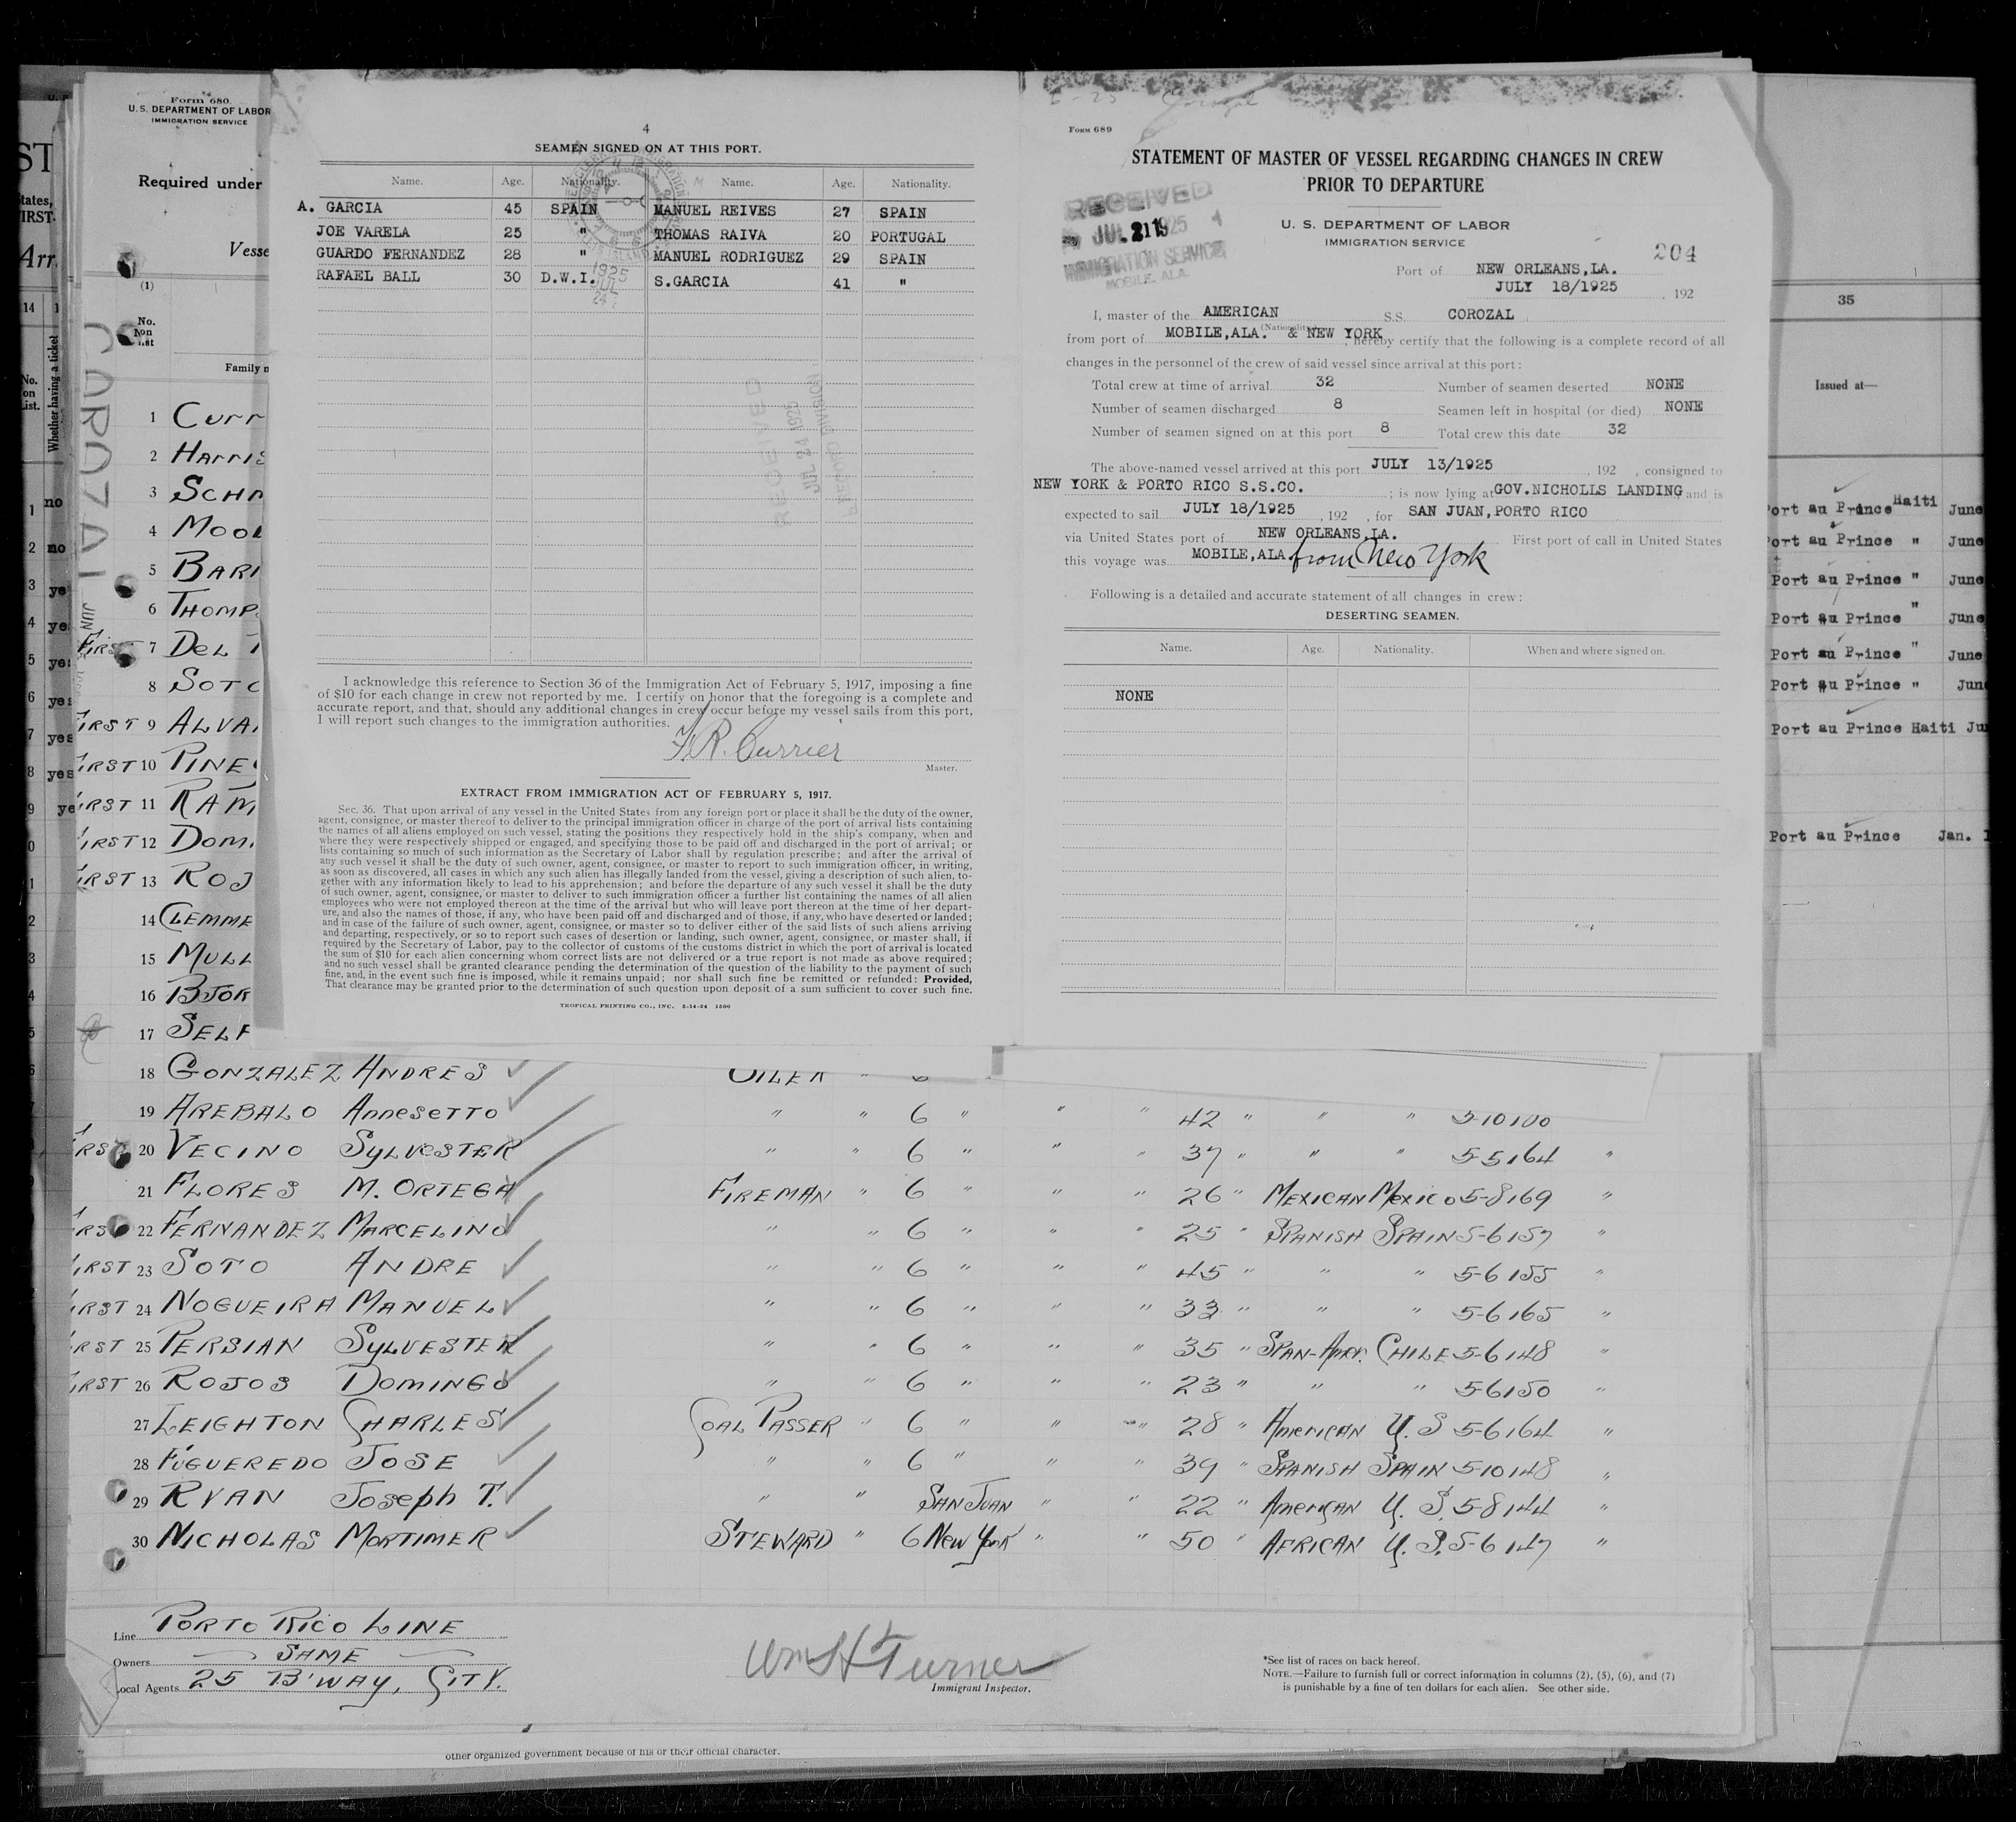 4
SEAMEN SIGNED ON AT THIS PORT.
Name. Age. Nationality. Name. Age. Nationality.
A. GARCIA 45 SPAIN MANUEL REIVES 27 SPAIN
JOE VARELA 25 " THOMAS RAIVA 20 PORTUGAL
GUARDO FERNANDEZ 28 " MANUEL RODRIGUEZ 29 SPAIN
RAFAEL BALL 30 D.W.I. S.GARCIA 41 "
1925
JUL
24
RECEIVED
JUL 24 1925
RECORD DIVISION
I acknowledge this reference to Section 36 of the Immigration Act of February 5, 1917, imposing a fine
of $10 for each change in crew not reported by me. I certify on honor that the foregoing is a complete and
accurate report, and that, should any additional changes in crew occur before my vessel sails from this port,
I will report such changes to the immigration authorities.
Currier
Master.
EXTRACT FROM IMMIGRATION ACT OF FEBRUARY 5, 1917.
Sec. 36. That upon arrival of any vessel in the United States from any foreign port or place it shall be the duty of the owner,
agent, consignee, or master thereof to deliver to the principal immigration officer in charge of the port of arrival lists containing
the names of all aliens employed on such vessel, stating the positions they respectively hold in the ship's company, when and
where they were respectively shipped or engaged, and specifying those to be paid off and discharged in the port of arrival; or
lists containing so much of such information as the Secretary of Labor shall by regulation prescribe; and after the arrival of
any such vessel it shall be the duty of such owner, agent, consignee, or master to report to such immigration officer, in writing,
as soon as discovered, all cases in which any such alien has illegally landed from the vessel, giving a description of such alien, to-
gether with any information likely to lead to his apprehension; and before the departure of any such vessel it shall be the duty
of such owner, agent, consignee, or master to deliver to such immigration officer a further list containing the names of all alien
employees who were not employed thereon at the time of the arrival but who will leave port thereon at the time of her depart-
ure, and also the names of those, if any, who have been paid off and discharged and of those, if any, who have deserted or landed;
and in case of the failure of such owner, agent, consignee, or master so to deliver either of the said lists of such aliens arriving
and departing, respectively, or so to report such cases of desertion or landing, such owner, agent, consignee, or master shall, if
required by the Secretary of Labor, pay to the collector of customs of the customs district in which the port of arrival is located
the sum of $10 for each alien concerning whom correct lists are not delivered or a true report is not made as above required;
and no such vessel shall be granted clearance pending the determination of the question of the liability to the payment of such
fine, and, in the event such fine is imposed, while it remains unpaid; nor shall such fine be remitted or refunded: Provided,
That clearance may be granted prior to the determination of such question upon deposit of a sum sufficient to cover such fine.
TROPICAL PRINTING CO., INC. 5-14-24 1500
Form 689
STATEMENT OF MASTER OF VESSEL REGARDING CHANGES IN CREW
PRIOR TO DEPARTURE
RECEIVED
JUL 21 1925
IMMIGRATION SERVICE
MOBILE, ALA.
U. S. DEPARTMENT OF LABOR
IMMIGRATION SERVICE
204
Port of NEW ORLEANS,LA.
JULY 18/1925 , 192
I, master of the AMERICAN S.S. COROZAL
(Nationality)
from port of MOBILE,ALA. & NEW YORK , hereby certify that the following is a complete record of all
changes in the personnel of the crew of said vessel since arrival at this port:
Total crew at time of arrival 32 Number of seamen deserted NONE
Number of seamen discharged 8 Seamen left in hospital (or died) NONE
Number of seamen signed on at this port 8 Total crew this date 32
The above-named vessel arrived at this port JULY 13/1925 , 192 , consigned to
NEW YORK & PORTO RICO S.S.CO. ; is now lying at GOV.NICHOLLS LANDING and is
expected to sail JULY 18/1925 , 192 , for SAN JUAN,PORTO RICO
via United States port of NEW ORLEANS,LA. First port of call in United States
this voyage was MOBILE,ALA from New York
Following is a detailed and accurate statement of all changes in crew:
DESERTING SEAMEN.
Name. Age. Nationality. When and where signed on.
NONE
Form 680.
U. S. DEPARTMENT OF LABOR
IMMIGRATION SERVICE
Required under
(1)
No. on list
COROZAL
JUN
1 CURR
2 HARRIS
3 SCHM
4 MOOL
5 BARI
6 THOMP
FIRST 7 DEL
8 SOTO
FIRST 9 ALVA
FIRST 10 PINE
FIRST 11 RAM
FIRST 12 DOM
FIRST 13 ROJ
14 CLEMME
15 MULL
16 BJOR
17 SELF
18 GONZALEZ ANDRES OILER " 6
19 AREBALO Annesetto " " 6 " " " 42 " " " 5-10
20 VECINO SYLVESTER " " 6 " " " 37 " " " 5-5 164 "
21 FLORES M. ORTEGA FIREMAN " 6 " " " 26 " MEXICAN Mexico 5-8 169 "
22 FERNANDEZ MARCELINO " " 6 " " " 25 " SPANISH SPAIN 5-6 157 "
FIRST 23 SOTO ANDRE " " 6 " " " 45 " " " 5-6 155 "
FIRST 24 NOGUEIRA MANUEL " " 6 " " " 33 " " " 5-6 165 "
25 PERSIAN SYLVESTER " " 6 " " " 35 " SPAN-AMER. CHILE 5-6 148 "
FIRST 26 ROJOS DOMINGO " " 6 " " " 23 " " " 5-6 150 "
27 LEIGHTON CHARLES COAL PASSER " 6 " " " 28 " AMERICAN U.S 5-6 164 "
28 FIGUEREDO JOSE " " 6 " " " 39 " SPANISH SPAIN 5-10 148 "
29 RYAN Joseph T. " " SAN JUAN " " 22 " AMERICAN U.S. 5-8 144 "
30 NICHOLAS MORTIMER STEWARD " 6 New York " " 50 " AFRICAN U.S. 5-6 147 "
Line PORTO RICO LINE
Owners SAME
Local Agents 25 B'WAY, CITY.
Wm H Turner
Immigrant Inspector.
*See list of races on back hereof.
NOTE.—Failure to furnish full or correct information in columns (2), (5), (6), and (7)
is punishable by a fine of ten dollars for each alien. See other side.
other organized government because of his or their official character.
14
Whether having a ticket
No. on List.
1 no
2 no
3 yes
4 yes
5 yes
6 yes
7 yes
8 yes
35
Issued at—
Port au Prince Haiti June
Port au Prince " June
Port au Prince " June
Port au Prince " June
Port au Prince " June
Port au Prince " June
Port au Prince Haiti
Port au Prince Jan.